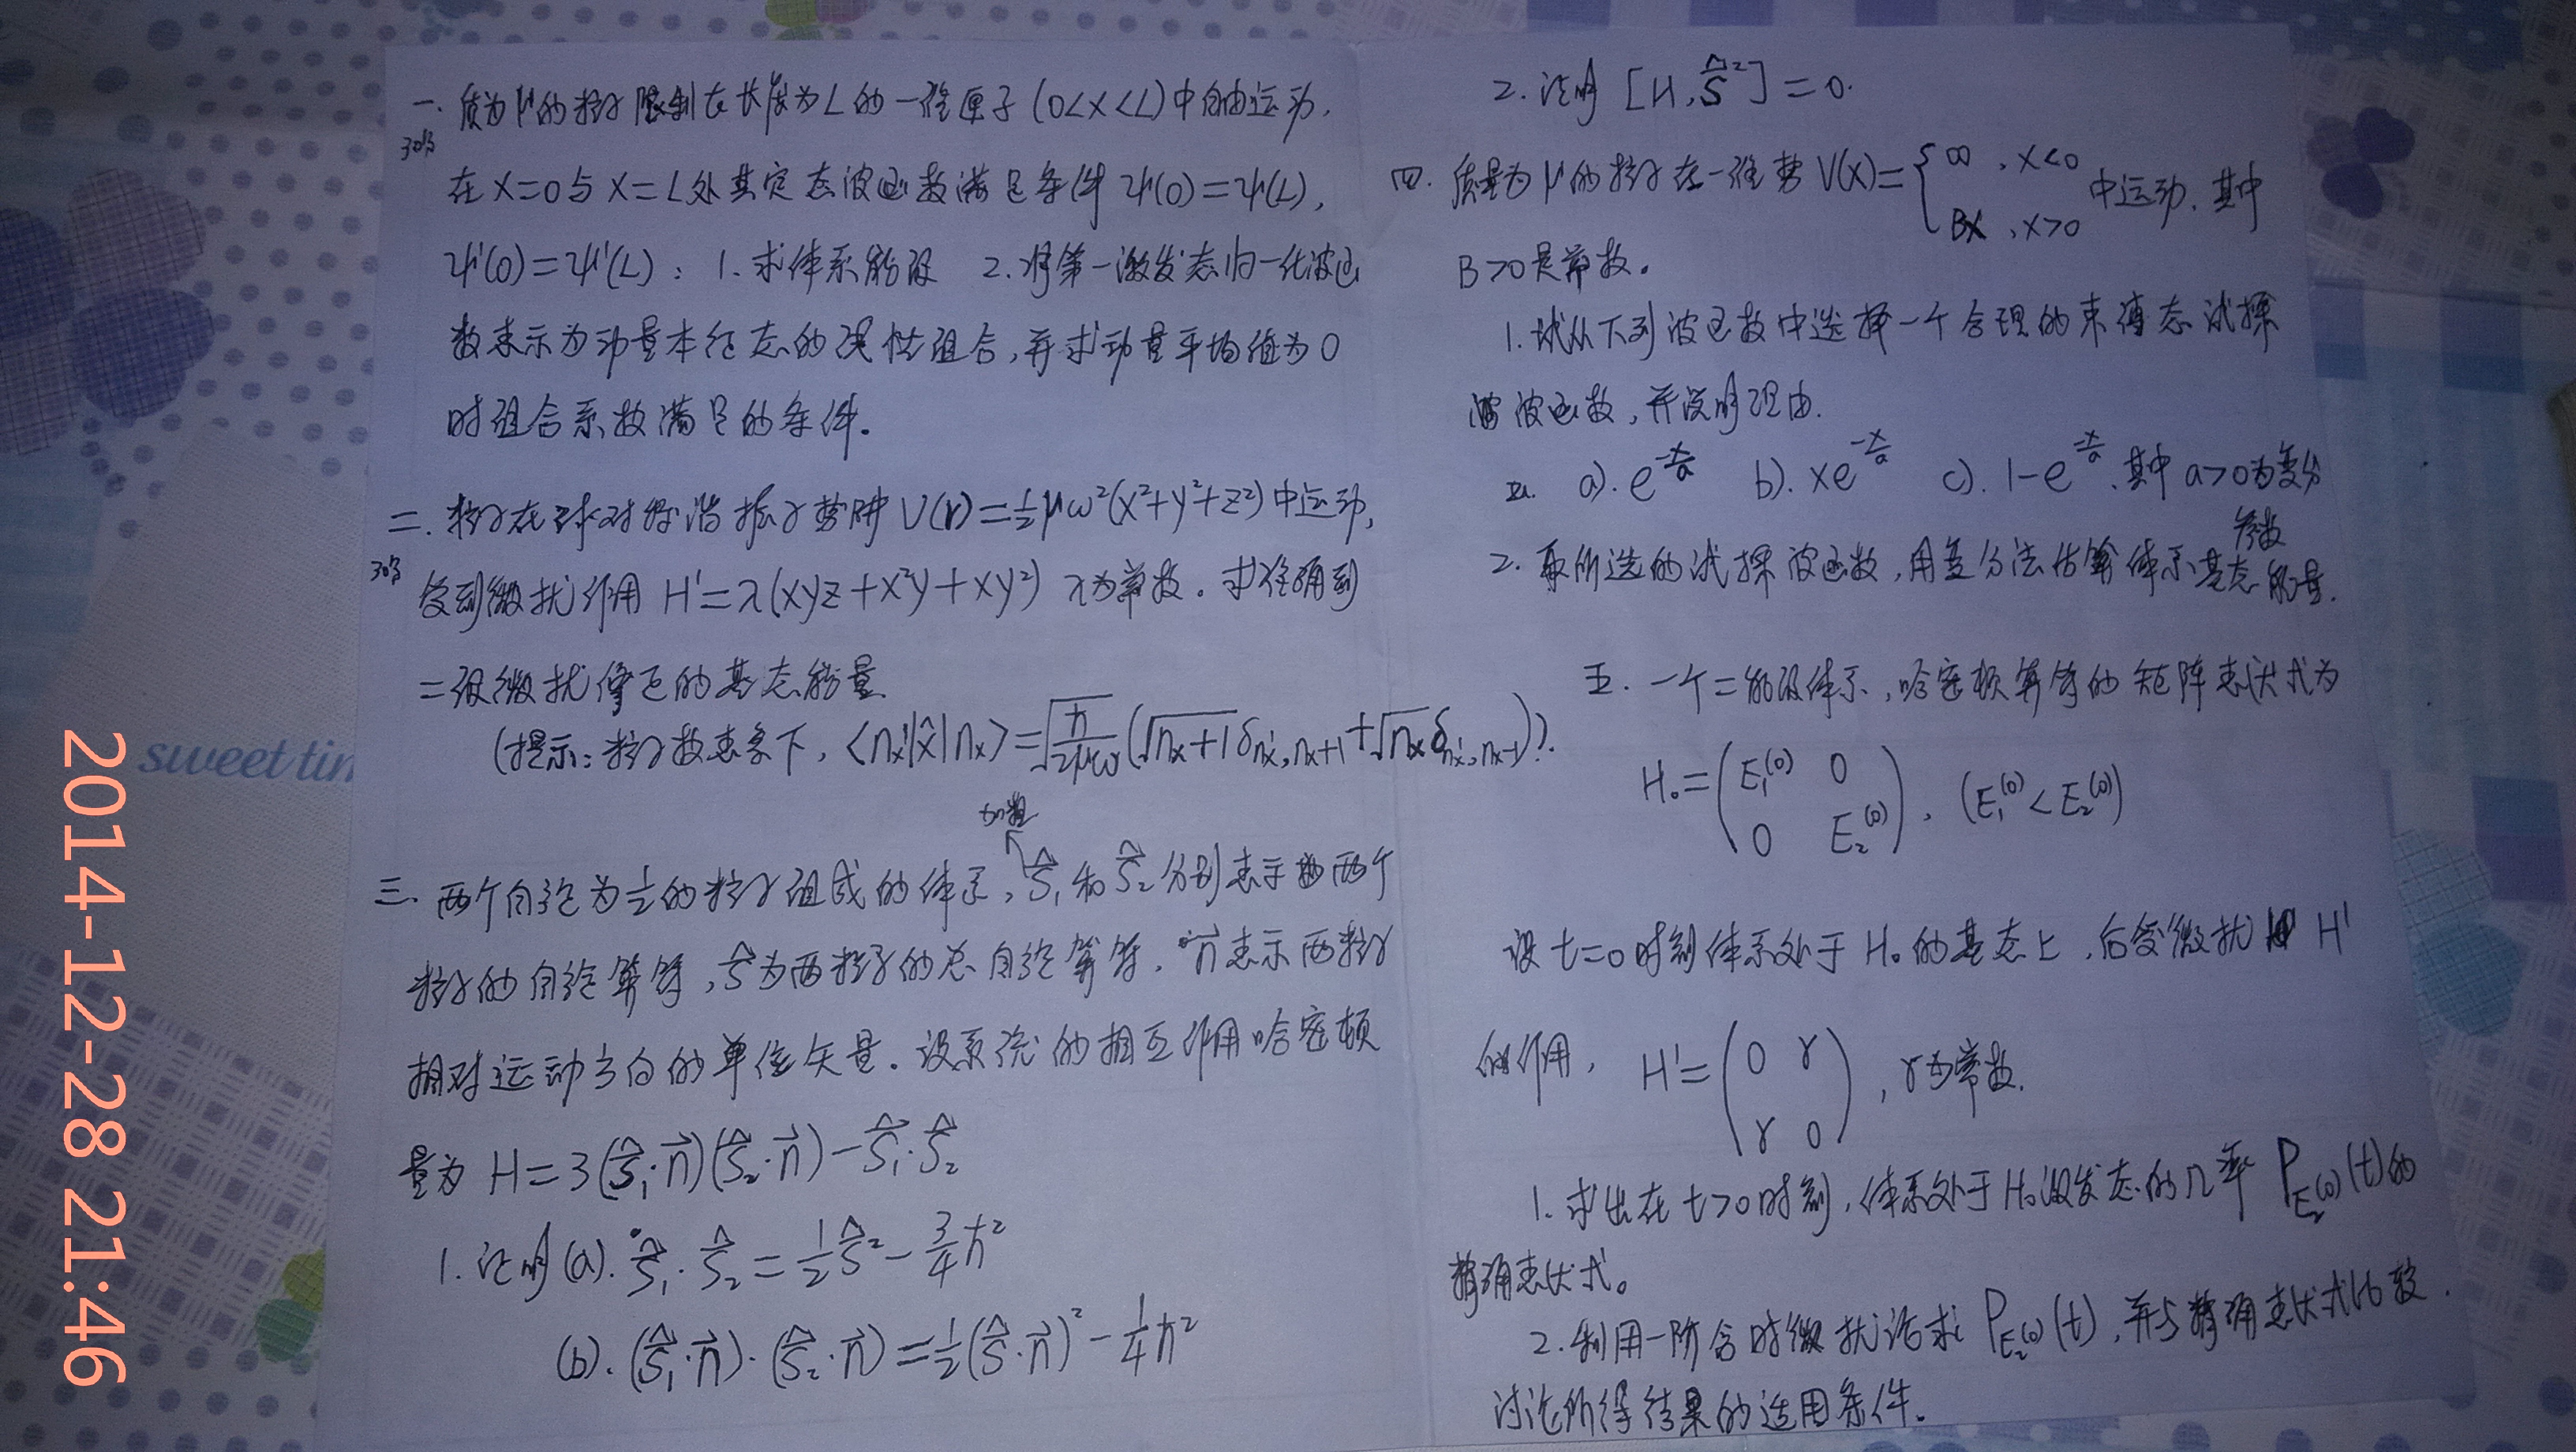 一. 质为μ的粒子限制在长度为L的一维匣子(0<x<L)中自由运动,
30分
在x=0与x=L处其定态波函数满足条件ψ(0)=ψ(L),
ψ'(0)=ψ'(L): 1.求体系能级 2.将第一激发态归一化波函
数表示为动量本征态的线性组合,并求动量平均值为0
时组合系数满足的条件.
二. 粒子在球对称谐振子势阱V(r)=½μω²(x²+y²+z²)中运动,
30分
受到微扰作用 H'=λ(xyz+x²y+xy²) λ为常数. 求准确到
二级微扰修正的基态能量.
(提示:粒子数表象下, ⟨n'x|x̂|nx⟩=√(ℏ/2μω)(√(nx+1)δn'x,nx+1+√nxδn'x,nx-1)).
加粗
三. 两个自旋为½的粒子组成的体系, Ŝ⃗₁和Ŝ⃗₂分别表示两个
粒子的自旋算符, Ŝ⃗为两粒子的总自旋算符, n⃗表示两粒子
相对运动方向的单位矢量. 设系统的相互作用哈密顿
量为 H=3(Ŝ⃗₁·n⃗)(Ŝ⃗₂·n⃗)-Ŝ⃗₁·Ŝ⃗₂
1. 证明(a). Ŝ⃗₁·Ŝ⃗₂=½Ŝ⃗²-¾ℏ²
(b). (Ŝ⃗₁·n⃗)·(Ŝ⃗₂·n⃗)=½(Ŝ⃗·n⃗)²-¼ℏ²
2. 证明 [H, Ŝ⃗²]=0.
四. 质量为μ的粒子在一维势V(x)={∞, x<0 Bx, x>0 中运动. 其中
B>0是常数.
1. 试从下列波函数中选择一个合理的束缚态试探
波函数, 并说明理由.
a). e^(-x/a) b). xe^(-x/a) c). 1-e^(-x/a). 其中a>0为变分
参数
2. 取所选的试探波函数, 用变分法估算体系基态能量.
五. 一个二能级体系, 哈密顿算符的矩阵表达式为
H₀=(E₁⁽⁰⁾ 0 0 E₂⁽⁰⁾), (E₁⁽⁰⁾<E₂⁽⁰⁾)
设t=0时刻体系处于H₀的基态上, 后受微扰H'
的作用, H'=(0 γ γ 0), γ为常数.
1. 求出在t>0时刻, 体系处于H₀激发态的几率P_E₂⁽⁰⁾(t)的
精确表达式.
2. 利用一阶含时微扰论求P_E₂⁽⁰⁾(t), 并与精确表达式比较.
讨论所得结果的适用条件.
sweet tim
2014-12-28 21:46